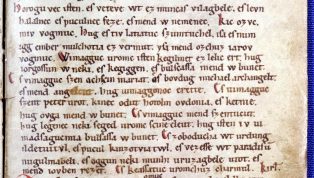 Horogu vec isten. es veteve wt ez muncas vilagbele. es levn
halalnec es puculnec feze. es mend w nemenec. Kic ozvc.
miv vogmuc. Hog es tiv latiatuv szumtuchel. isa es num
igg ember mulchotia ez vermut. ysa mend ozchuz iarov
vogmuc. Wimagguc uromv isten kegilmet ez lelic ert. hug
iorgossun w neki. es kegiggen. es bulsassa mend w bunet.
Es vimagguc szen achscin mariat. es bovdug michael archangelt.
es mend angelcut. hug uimaggonoc erette. Es uimagguc
szent peter urot. kinec odut hotolm ovdonia. es ketnie.
hug ovga mend w bunet. Es vimagguc mend szentucut.
hug legenec neki seged uromc scine eleut. hug isten iv ui
madsagucmia bulsassa w bunet. Es zoboducha wt urdung
ildetuitvl. es pucul kinzotviatwl. es vezesse wt paradisu
nugulmabeli. es oggun neki munhi uruzagbele utot. es
mend iovben rezet. Es keassatuc uromchuz charmul. Kirl.